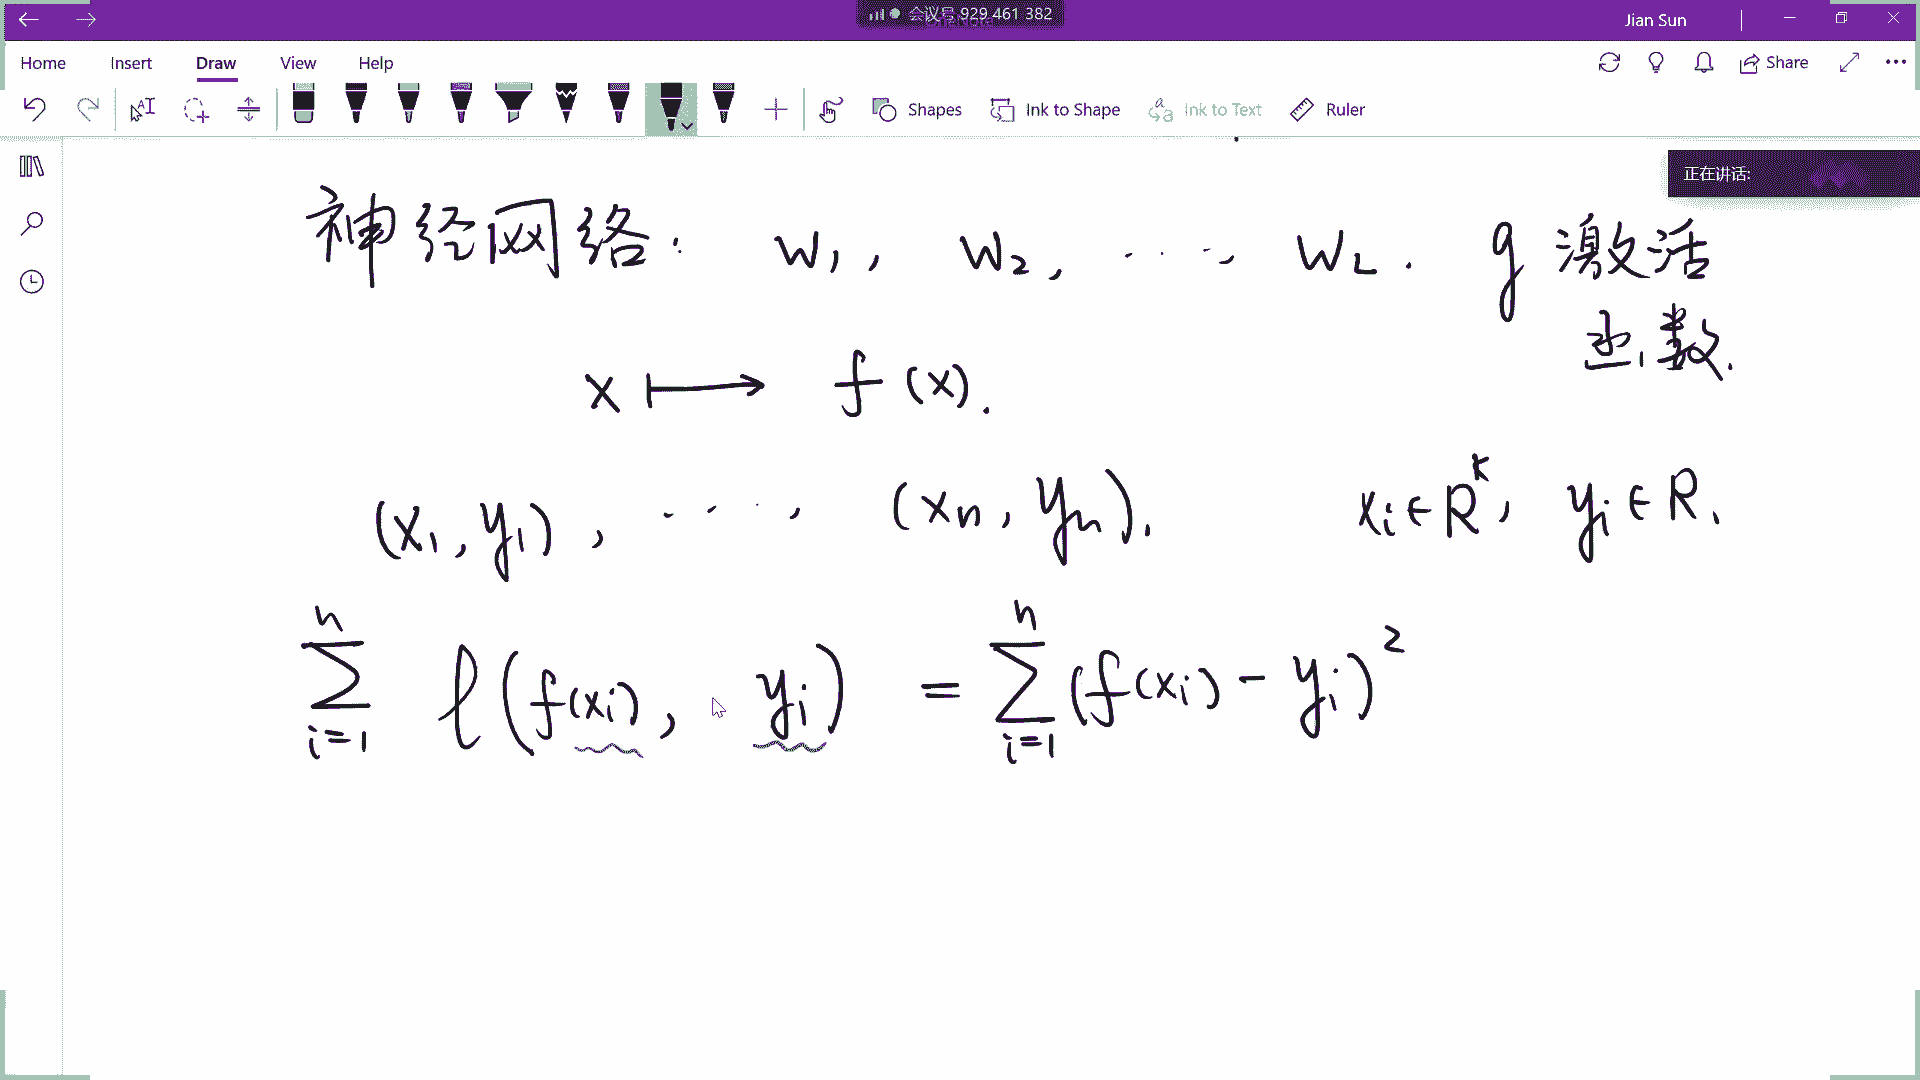 会议号 929 461 382
Jian Sun
Home Insert Draw View Help
Share
Shapes Ink to Shape Ink to Text Ruler
正在讲话:
神经网络: W₁, W₂, ..., W_L. g 激活
函数.
x ⟼ f(x).
(x₁, y₁), ..., (xₙ, yₙ). xᵢ∈R^k, yᵢ∈R.
∑_{i=1}^{n} ℓ(f(xᵢ), yᵢ) = ∑_{i=1}^{n} (f(xᵢ) - yᵢ)²